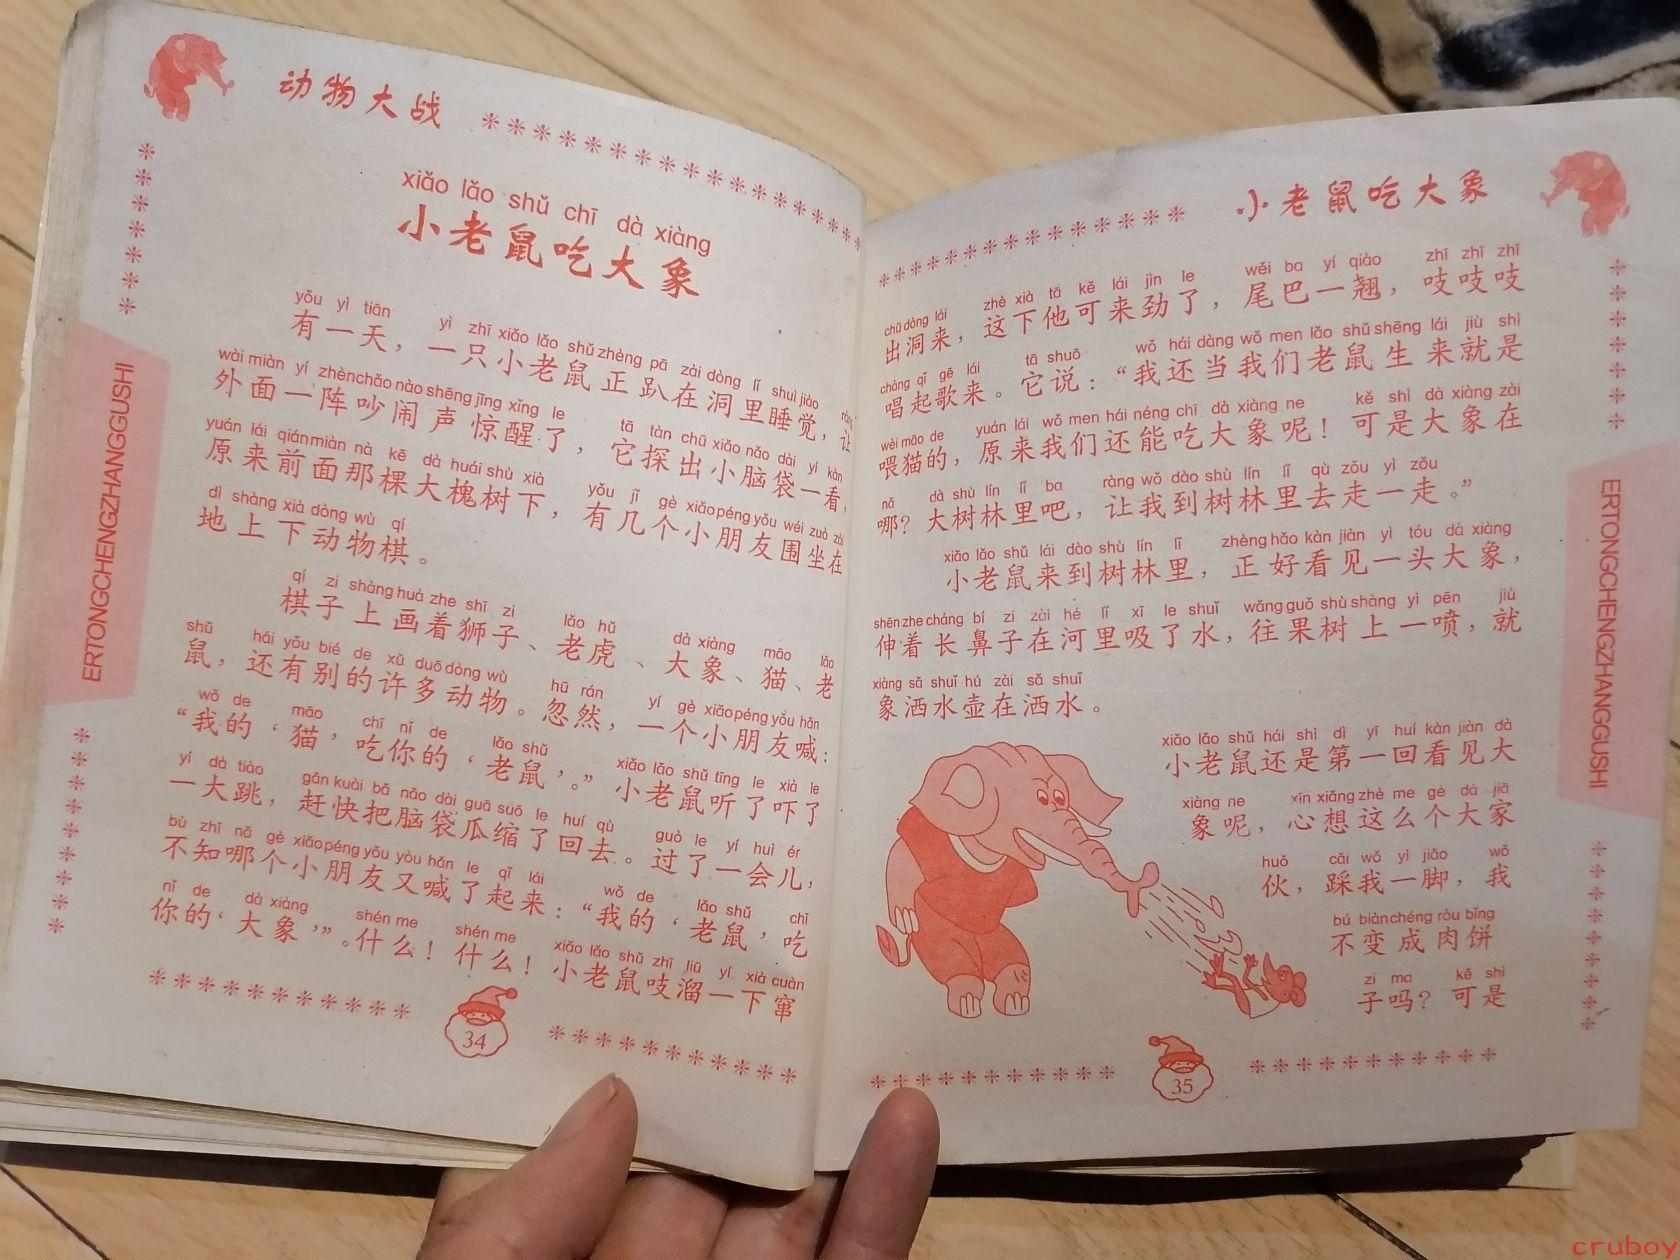 动物大战
xiǎo lǎo shǔ chī dà xiàng
小老鼠吃大象
yǒu yì tiān yì zhī xiǎo lǎo shǔ zhèng pā zài dòng lǐ shuì jiào ràng
有一天，一只小老鼠正趴在洞里睡觉，让
wài miàn yí zhèn chǎo nào shēng jīng xǐng le tā tàn chū xiǎo nǎo dài yí kàn
外面一阵吵闹声惊醒了，它探出小脑袋一看，
yuán lái qián miàn nà kē dà huái shù xià yǒu jǐ gè xiǎo péng yǒu wéi zuò zài
原来前面那棵大槐树下，有几个小朋友围坐在
dì shàng xià dòng wù qí
地上下动物棋。
qí zi shàng huà zhe shī zi lǎo hǔ dà xiàng māo lǎo
棋子上画着狮子、老虎、大象、猫、老
shǔ hái yǒu bié de xǔ duō dòng wù hū rán yí gè xiǎo péng yǒu hǎn
鼠，还有别的许多动物。忽然，一个小朋友喊：
wǒ de māo chī nǐ de lǎo shǔ xiǎo lǎo shǔ tīng le xià le
“我的‘猫，吃你的‘老鼠，。”小老鼠听了吓了
yí dà tiào gǎn kuài bǎ nǎo dài guā suō le huí qù guò le yí huì ér
一大跳，赶快把脑袋瓜缩了回去。过了一会儿，
bù zhī nǎ gè xiǎo péng yǒu yòu hǎn le qǐ lái wǒ de lǎo shǔ chī
不知哪个小朋友又喊了起来：“我的‘老鼠，吃
nǐ de dà xiàng shén me shén me xiǎo lǎo shǔ zhī liū yí xià cuàn
你的‘大象’”。什么！什么！小老鼠吱溜一下窜
34
ERTONGCHENGZHANGGUSHI
小老鼠吃大象
chū dòng lái zhè xià tā kě lái jìn le wěi ba yí qiào zhī zhī zhī
出洞来，这下他可来劲了，尾巴一翘，吱吱吱
chàng qǐ gē lái tā shuō wǒ hái dàng wǒ men lǎo shǔ shēng lái jiù shì
唱起歌来。它说：“我还当我们老鼠生来就是
wèi māo de yuán lái wǒ men hái néng chī dà xiàng ne kě shì dà xiàng zài
喂猫的，原来我们还能吃大象呢！可是大象在
nǎ dà shù lín lǐ ba ràng wǒ dào shù lín lǐ qù zǒu yì zǒu
哪？大树林里吧，让我到树林里去走一走。”
xiǎo lǎo shǔ lái dào shù lín lǐ zhèng hǎo kàn jiàn yì tóu dà xiàng
小老鼠来到树林里，正好看见一头大象，
shēn zhe cháng bí zi zài hé lǐ xī le shuǐ wǎng guǒ shù shàng yì pēn jiù
伸着长鼻子在河里吸了水，往果树上一喷，就
xiàng sǎ shuǐ hú zài sǎ shuǐ
象洒水壶在洒水。
xiǎo lǎo shǔ hái shì dì yī huí kàn jiàn dà
小老鼠还是第一回看见大
xiàng ne xīn xiǎng zhè me gè dà jiā
象呢，心想这么个大家
huǒ cǎi wǒ yì jiǎo wǒ
伙，踩我一脚，我
bú biàn chéng ròu bǐng
不变成肉饼
zi ma kě shì
子吗？可是
35
ERTONGCHENGZHANGGUSHI
cruboy